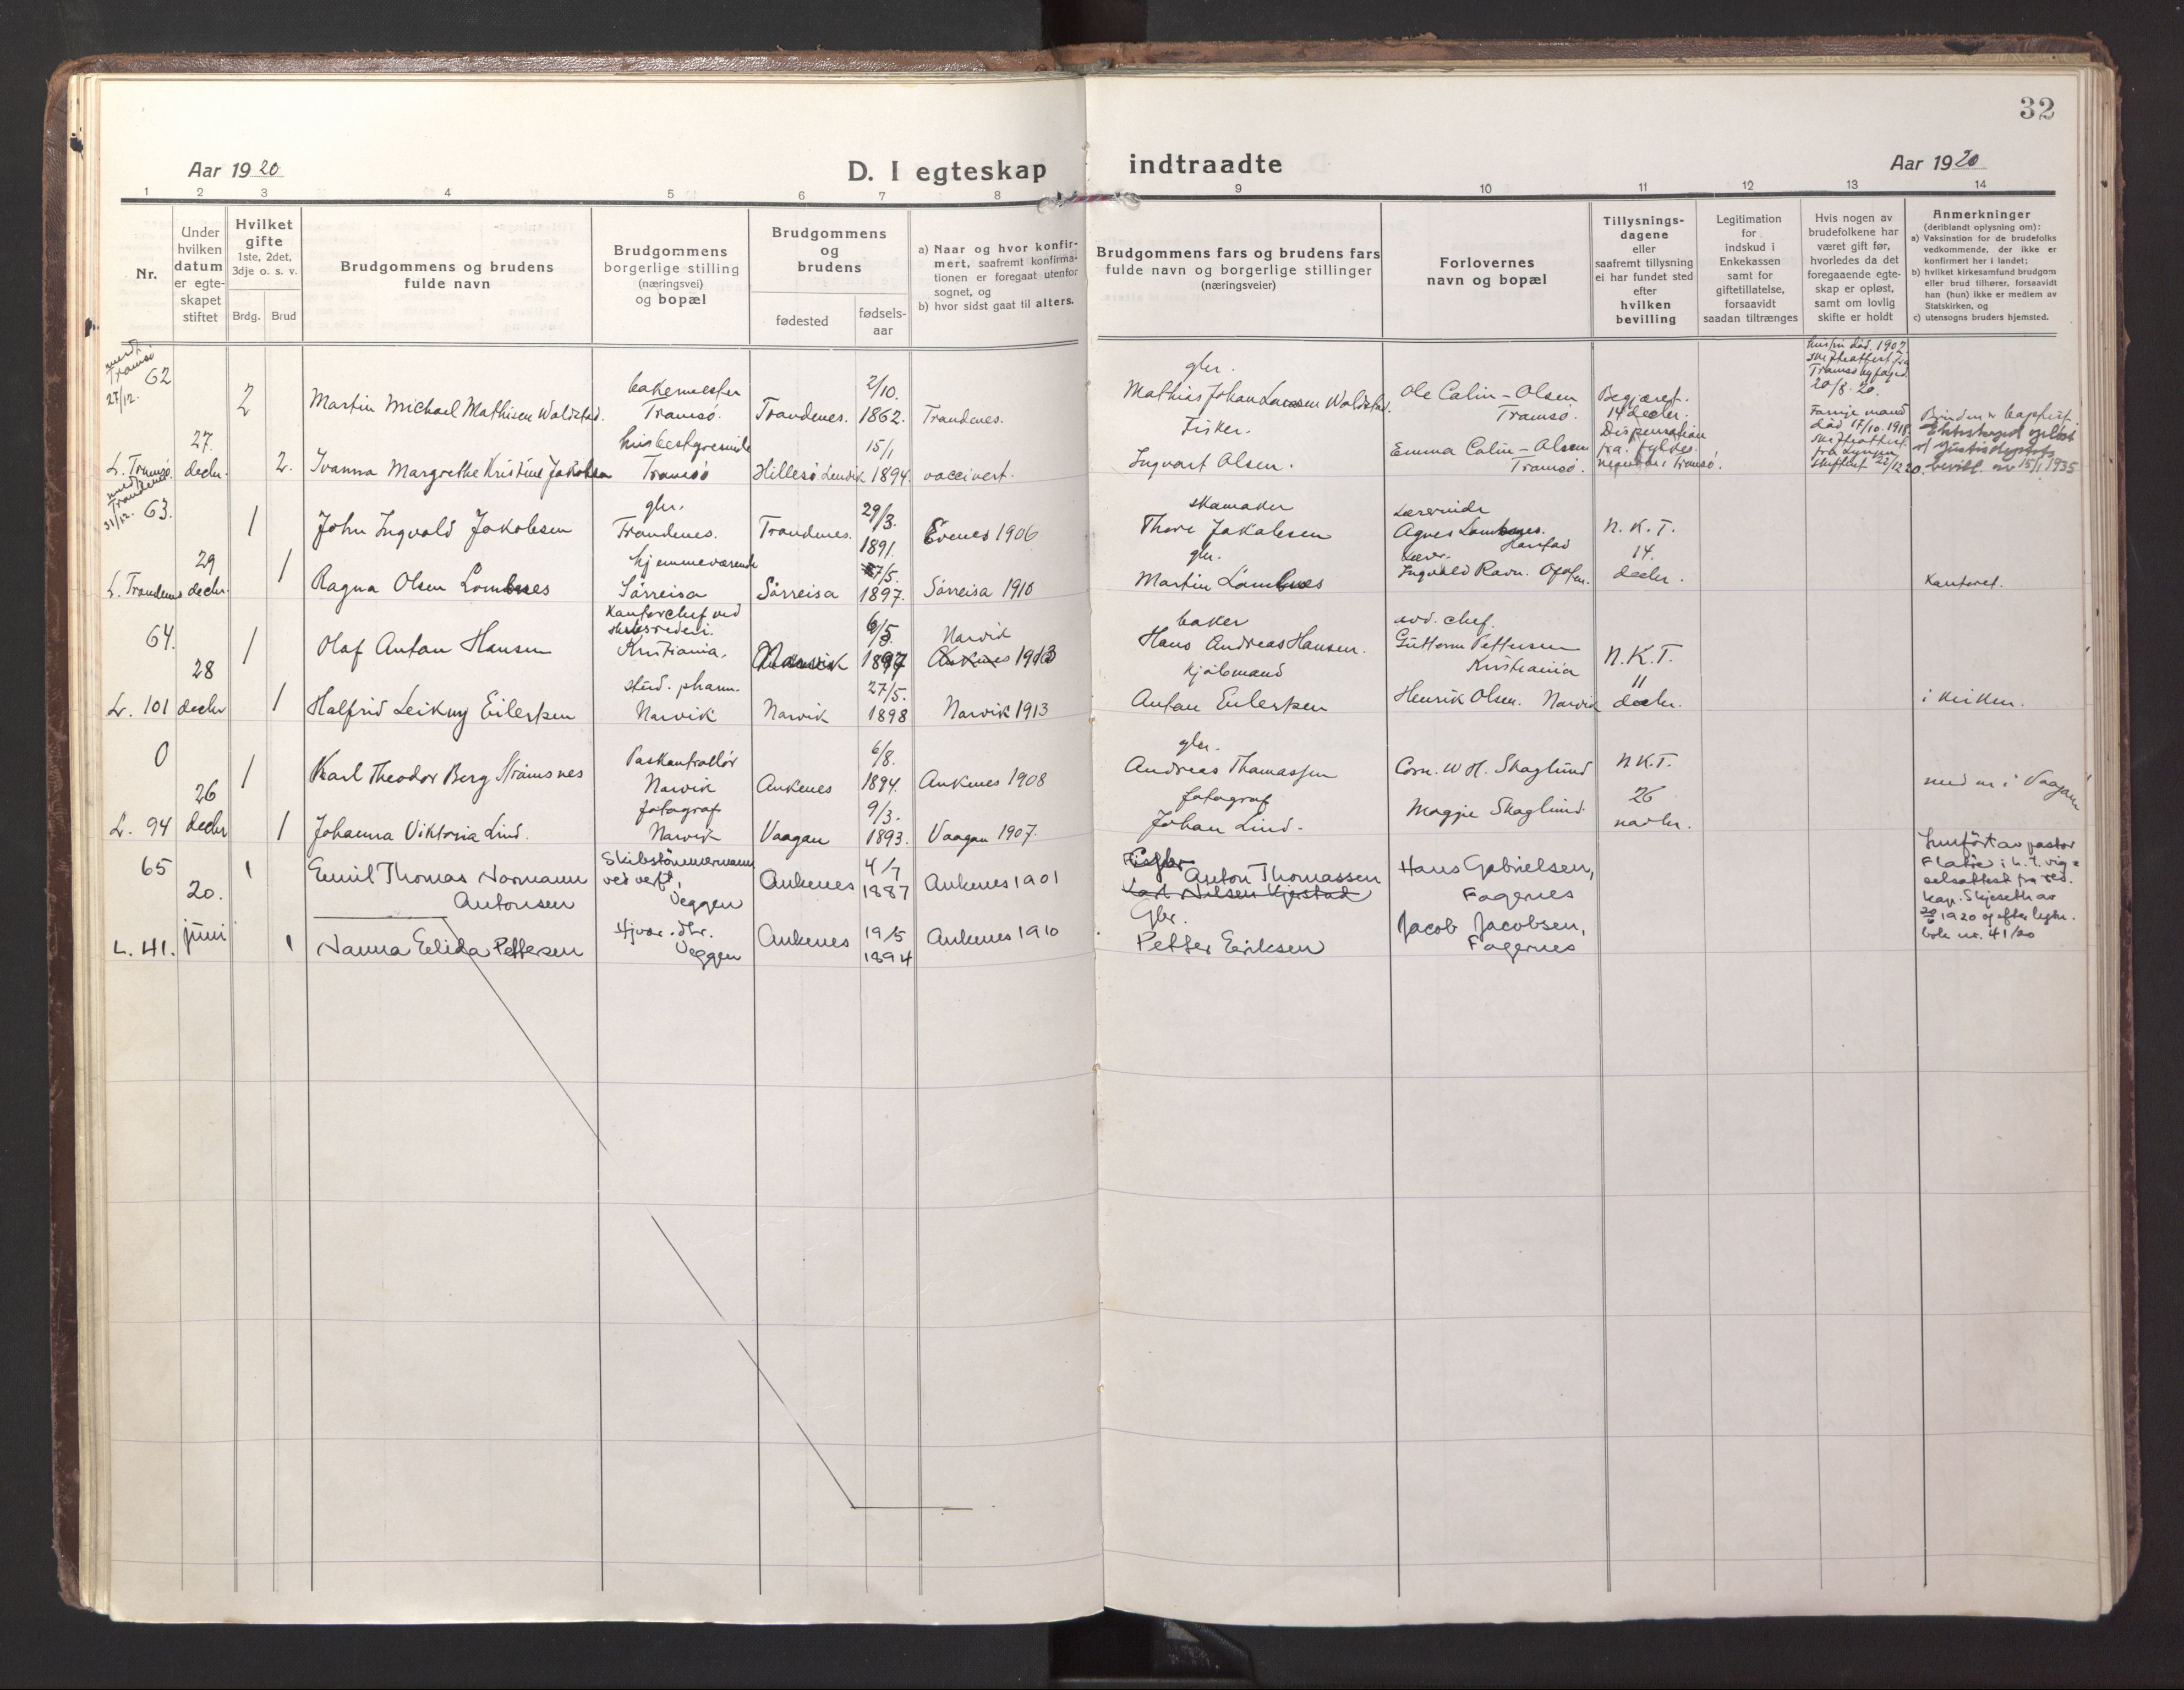 32
Aar 1920
D. I egteskap
indtraadte
Aar 1920
1 2 3 4 5 6 7 8
9 10 11 12 13 14
Nr.
Under
hvilken
datum
er egte-
skapet
stiftet
Hvilket
gifte
1ste, 2det,
3dje o. s. v.
Brdg. Brud
Brudgommens og brudens
fulde navn
Brudgommens
borgerlige stilling
(næringsvei)
og bopæl
Brudgommens
og
brudens
fødested
fødsels-
aar
a) Naar og hvor konfir-
mert, saafremt konfirma-
tionen er foregaat utenfor
sognet, og
b) hvor sidst gaat til alters.
Brudgommens fars og brudens fars
fulde navn og borgerlige stillinger
(næringsveier)
Forlovernes
navn og bopæl
Tillysnings-
dagene
eller
saafremt tillysning
ei har fundet sted
efter
hvilken
bevilling
Legitimation
for
indskud i
Enkekassen
samt for
giftetillatelse,
forsaavidt
saadan tiltrænges
Hvis nogen av
brudefolkene har
været gift før,
hvorledes da det
foregaaende egte-
skap er opløst,
samt om lovlig
skifte er holdt
Anmerkninger
(deriblandt oplysning om):
a) Vaksination for de brudefolks
vedkommende, der ikke er
konfirmert her i landet;
b) hvilket kirkesamfund brudgom
eller brud tilhører, forsaavidt
han (hun) ikke er medlem av
Statskirken, og
c) utensogns bruders hjemsted.
medt
Tromsø
27/12.
62
2
Martin Michael Mathisen Waldstad.
bakermester
Tromsø.
Trondenes.
2/10.
1862.
Trondenes.
gbr.
Mathias Johan Larssen Waldstad.
Ole Calin-Olsen
Tromsø.
Begjæret.
14 decbr.
hustru død. 1902
skifteattest fra
Tromsø byfoged.
20/8. 20.
27.
decbr.
L. Tromsø.
2.
Ivanna Margrethe Kristine Jakobsen
husbestyrerinde
Tromsø
Hillesø Lenvik
15/1
1894.
vaccinert.
Fisker.
Ingvart Olsen.
Emma Calin-Olsen
Tromsø.
Dispensation
fra. fylkes.
Tromsø.
Forrige mand
død 17/10. 1918.
skifteattest
fra Lyngen
22/12 20.
Bruden er baptist
Ekteskapet opløst
v/ Justisdeptets
bevill. av 15/1 1935
medt
Trondenes
31/12.
63.
1
John Ingvald Jakobsen
gbr.
Trondenes.
Trondenes.
29/3.
1891.
Evenes 1906
skomaker
Thore Jakobsen
Lærerinde
Agnes Lombnes.
Harstad
N. K. T.
29
decbr.
L. Trondenes
1
Ragna Olsen Lombnes
hjemmeværende
Sørreisa
Sørreisa
7/5.
1897.
Sørreisa 1910
gbr.
Martin Lombnes
Lærer.
Ingvald Ravn.
14.
decbr.
Kontoret.
64.
1
Olaf Anton Hansen
Kontorchef ved
skibsrederi.
Kristiania.
Narvik
6/5
1897
Narvik
Ankenes 1913
baker
Hans Andreas Hansen.
avd. chef.
Guttorm Pettersen
Kristiania
N.K.T.
28
decbr
L. 101
1
Halfrid Leikny Eilertsen
stud. pharm.
Narvik
Narvik
27/5.
1898
Narvik 1913
kjøbmand
Anton Eilertsen
Henrik Olsen. Narvik
11
decbr.
i kirken.
0
1
Karl Theodor Berg Strømsnes
Paskontrollør
Narvik
Ankenes
6/8.
1894.
Ankenes 1908
gbr.
Andreas Thomassen
Corn. W H. Skoglund
N K.T.
26
decbr
L. 94
1
Johanna Viktoria Lind.
fotograf
Narvik
Vaagan
9/3.
1893.
Vaagan 1907.
fotograf
Johan Lind.
Magge Skoglund
26
novbr.
med nr i Vaagan
65
1
Emil Thomas Normann
Antonsen
Skibstømmermann
ved verft,
Veggen
Ankenes
4/7
1887
Ankenes 1901
Fisker
Anton Thomassen
Karl Nilsen Kjerstad
Hans Gabrielsen,
Fagernes
20.
juni
L. 41.
1
Nanna Eelida Pettersen
Hjvær. dtr.
Veggen
Ankenes
19/5
1894
Ankenes 1910
Gbr.
Petter Eriksen
Jacob Jacobsen,
Fagernes
Innført av pastor
Flatøe i h. t. vig=
selsattest fra red.
kap. Skjeseth av
20/6 1920 og efter lysn.
bok nr. 41/20